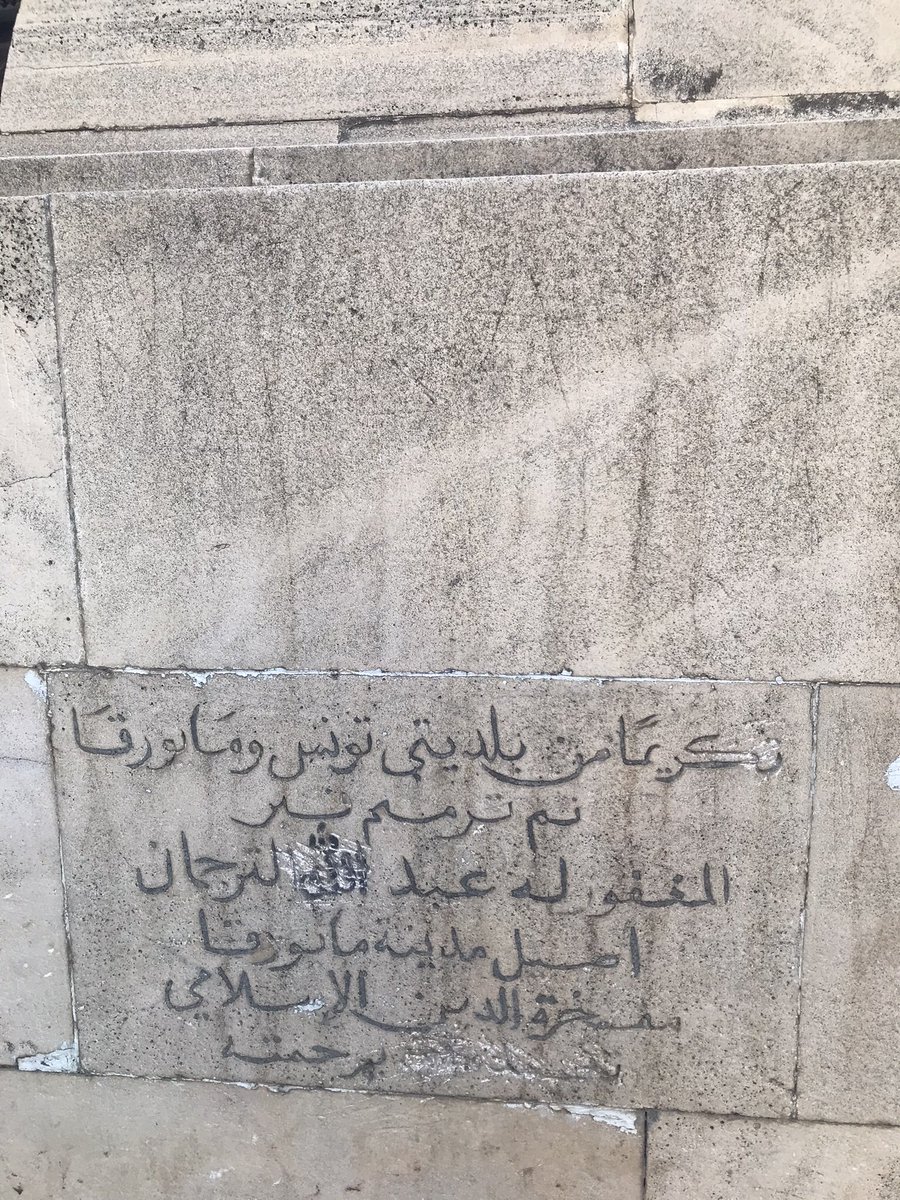 تكريمًا من بلديتي تونس ومَايورقَا
تم ترميم قبر
المغفور له عبد الله الترجمان
اصيل مدينة مايورقا
مفخرة الدين الإسلامي
برحمته